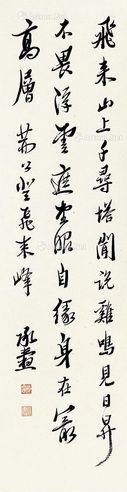 飛来山上千尋塔聞説雞鳴見日昇
不畏浮雲遮望眼自緣身在最
高層 葊公登飛来峰 承燾